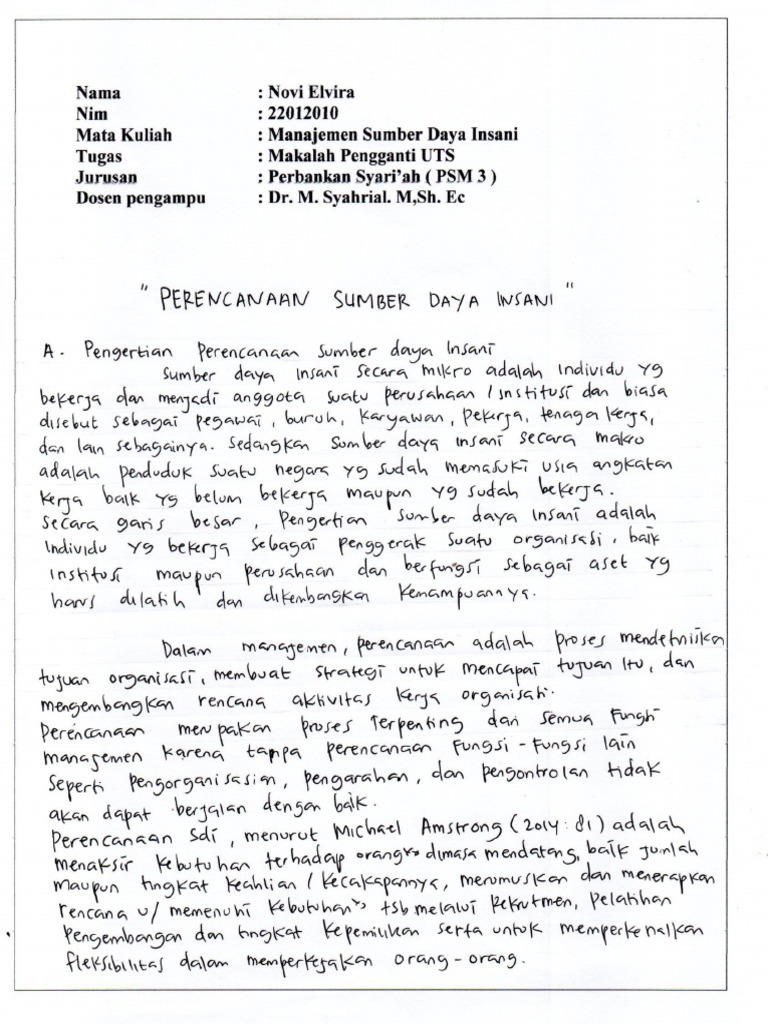 Nama : Novi Elvira
Nim : 22012010
Mata Kuliah : Manajemen Sumber Daya Insani
Tugas : Makalah Pengganti UTS
Jurusan : Perbankan Syari'ah ( PSM 3 )
Dosen pengampu : Dr. M. Syahrial. M,Sh. Ec
" PERENCANAAN SUMBER DAYA INSANI "
A. Pengertian Perencanaan Sumber daya Insani
Sumber daya insani secara mikro adalah individu yg
bekerja dan menjadi anggota suatu perusahaan / institusi dan biasa
disebut sebagai pegawai, buruh, karyawan, pekerja, tenaga kerja,
dan lain sebagainya. Sedangkan sumber daya insani secara makro
adalah penduduk suatu negara yg sudah memasuki usia angkatan
kerja baik yg belum bekerja maupun yg sudah bekerja.
Secara garis besar, pengertian sumber daya insani adalah
individu yg bekerja sebagai penggerak suatu organisasi, baik
institusi maupun perusahaan dan berfungsi sebagai aset yg
harus dilatih dan dikembangkan kemampuannya.
Dalam managemen, perencanaan adalah proses mendefinisikan
tujuan organisasi, membuat strategi untuk mencapai tujuan itu, dan
mengembangkan rencana aktivitas kerja organisasi.
Perencanaan merupakan proses terpenting dari semua fungsi
managemen karena tanpa perencanaan fungsi-fungsi lain
seperti pengorganisasian, pengarahan, dan pengontrolan tidak
akan dapat berjalan dengan baik.
Perencanaan Sdi, menurut Michael Amstrong (2014:81) adalah
menaksir kebutuhan terhadap orang" dimasa mendatang, baik jumlah
maupun tingkat keahlian / kecakapannya, merumuskan dan menerapkan
rencana u/ memenuhi kebutuhan" tsb melalui rekrutmen, pelatihan
pengembangan dan tingkat kepemilikan serta untuk memperkenalkan
fleksibilitas dalam memperkejakan orang-orang.